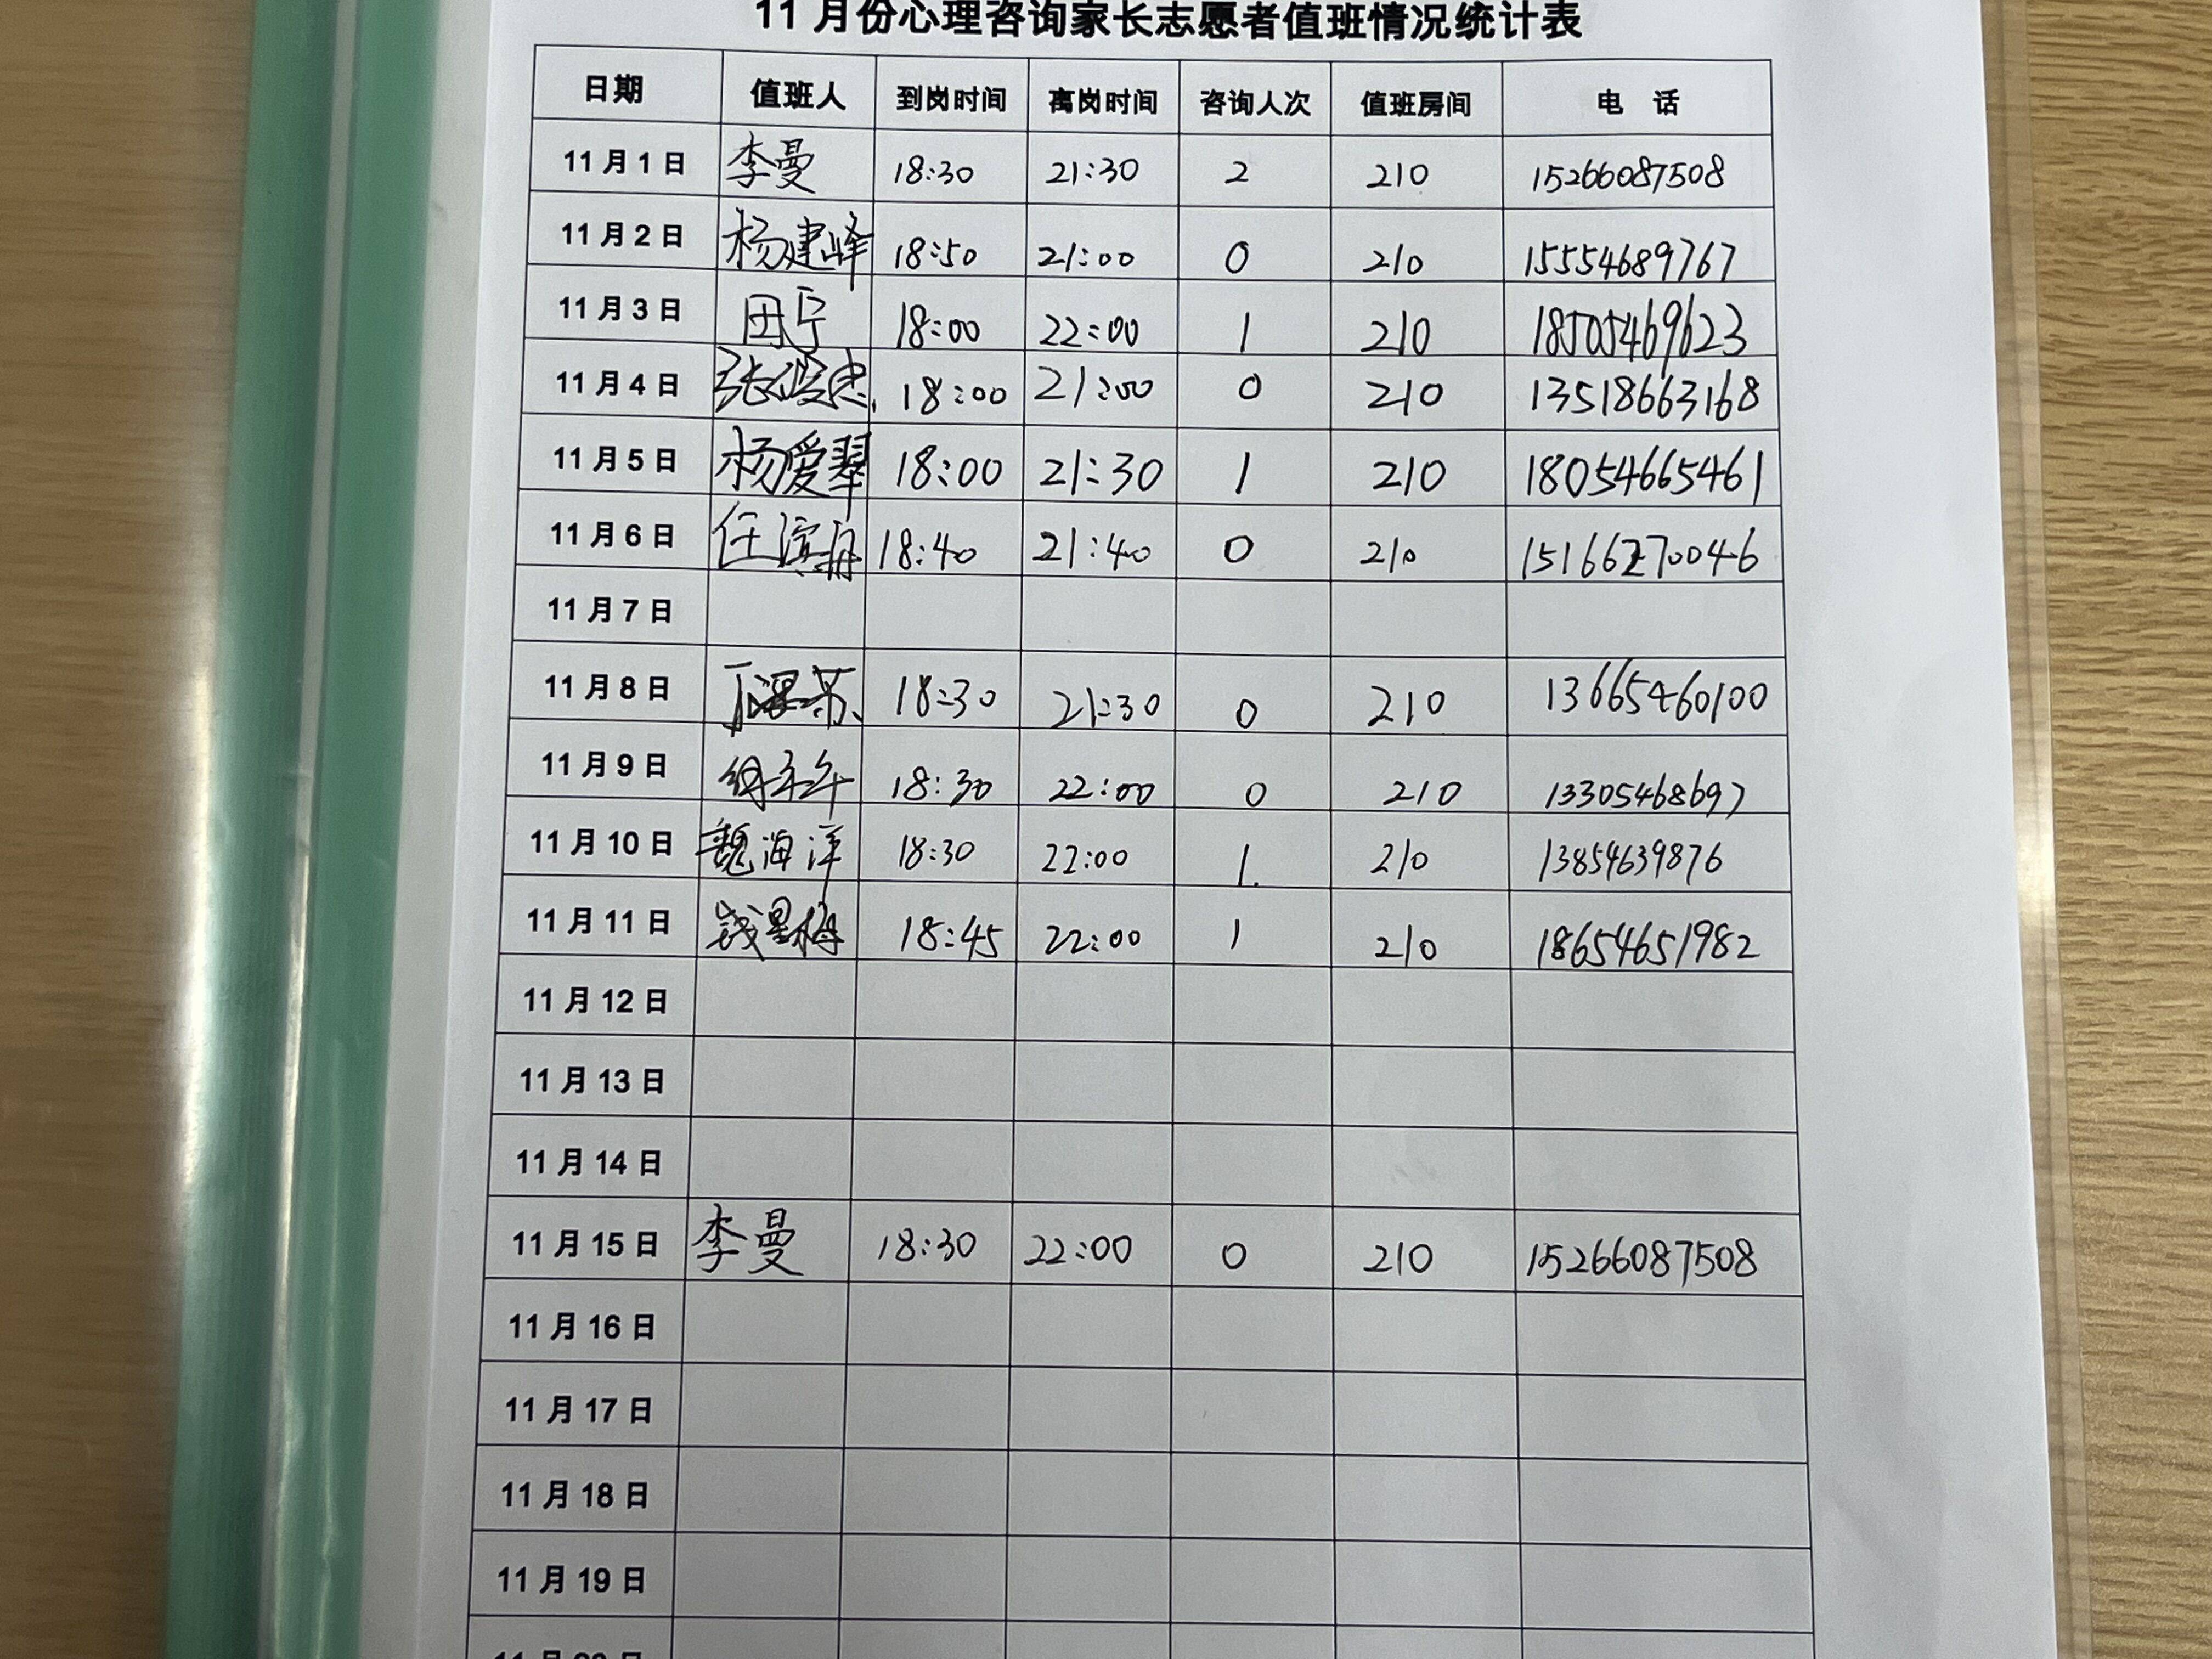 11月份心理咨询家长志愿者值班情况统计表
日期 值班人 到岗时间 离岗时间 咨询人次 值班房间 电 话
11月1日 李曼 18:30 21:30 2 210 15266087508
11月2日 杨建峰 18:50 21:00 0 210 15554689767
11月3日 田宁 18:00 22:00 1 210 18505469623
11月4日 18:00 21:00 0 210 13518663168
11月5日 杨爱翠 18:00 21:30 1 210 18054665461
11月6日 任滨舟 18:40 21:40 0 210 15166270046
11月7日
11月8日 18:30 21:30 0 210 13665460100
11月9日 18:30 22:00 0 210 13305468697
11月10日 魏海洋 18:30 22:00 1. 210 13854639876
11月11日 18:45 22:00 1 210 18654651982
11月12日
11月13日
11月14日
11月15日 李曼 18:30 22:00 0 210 15266087508
11月16日
11月17日
11月18日
11月19日